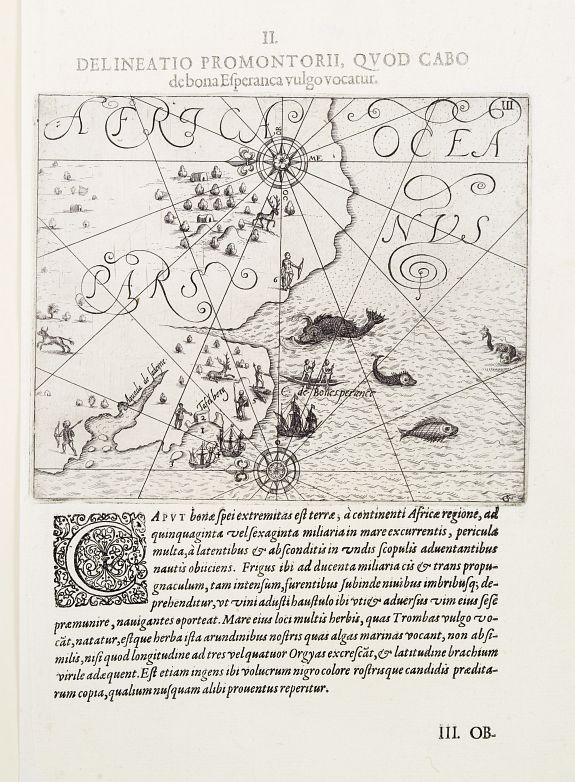 II.
DELINEATIO PROMONTORII, QVOD CABO
de bona Esperanca vulgo vocatur.
III
AFRICAE
OCEA
OR
ME
OC
NVS
PARS
Aguada de Saldanie
Tafelberg
C. de Bonesperance
CAPVT bonæ spei extremitas est terræ, à continenti Africæ regione, ad
quinquaginta vel sexaginta miliaria in mare excurrentis, pericula
multa, à latentibus & absconditis in vndis scopulis aduentantibus
nautis obiiciens. Frigus ibi ad ducenta miliaria cis & trans propu-
gnaculum, tam intensum, furentibus subinde niuibus imbribusq́; de-
prehenditur, vt vini adusti haustulo ibi vti & aduersus vim eius sese
præmunire, nauigantes oporteat. Mare eius loci multis herbis, quas Trombas vulgo vo-
cāt, natatur, estque herba ista arundinibus nostris quas algas marinas vocant, non absi-
milis, nisi quod longitudine ad tres vel quatuor Orgyas excrescāt, & latitudine brachium
virile adæquent. Est etiam ingens ibi volucrum nigro colore rostrisque candidis prædita-
rum copia, qualium nusquam alibi prouentus reperitur.
III. OB-